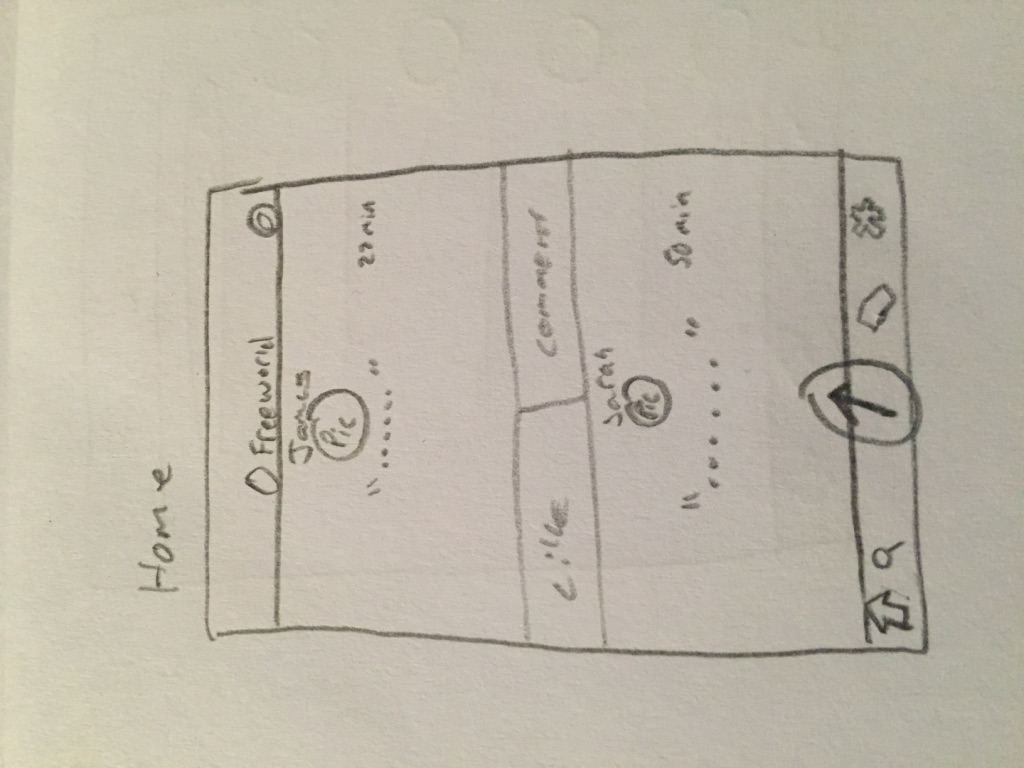 Home
Freeworld
James
Pic
22 min
" ...... "
Like comment
Sarah
Pic
50 min
" ...... "